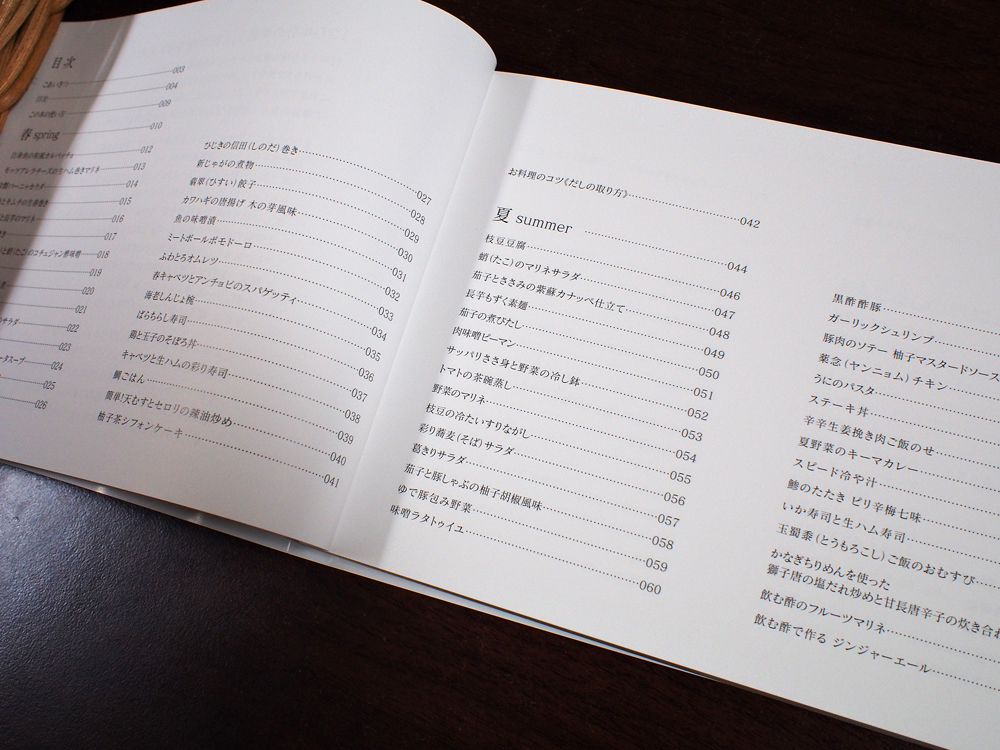 目次
ごあいさつ……003
目次……004
この本の使い方……009
春 spring……010
白身魚の和風カルパッチョ……012
モッツアレラチーズの生ハム巻きマリネ……013
……014
……015
長芋のマリネ……016
……017
(たこ)のコチュジャン酢味噌……018
……019
……020
サラダ……021
……022
……023
スープ……024
……025
……026
ひじきの信田(しのだ)巻き……027
新じゃがの煮物……028
翡翠(ひすい)餃子……029
カワハギの唐揚げ 木の芽風味……030
魚の味噌漬……031
ミートボールポモドーロ……032
ふわとろオムレツ……033
春キャベツとアンチョビのスパゲッティ……034
海老しんじょ椀……035
ばらちらし寿司……036
と玉子のそぼろ丼……037
キャベツと生ハムの彩り寿司……038
鯛ごはん……039
簡単!天むすとセロリの辣油炒め……040
柚子茶シフォンケーキ……041
お料理のコツ《だしの取り方》……042
夏 summer……044
枝豆豆腐……046
蛸(たこ)のマリネサラダ……047
茄子とささみの紫蘇カナッペ仕立て……048
長芋もずく素麺……049
茄子の煮びたし……050
肉味噌ピーマン……051
サッパリささ身と野菜の冷し鉢……052
トマトの茶碗蒸し……053
野菜のマリネ……054
枝豆の冷たいすりながし……055
彩り蕎麦(そば)サラダ……056
葛きりサラダ……057
茄子と豚しゃぶの柚子胡椒風味……058
ゆで豚包み野菜……059
味噌ラタトゥイユ……060
黒酢酢豚……
ガーリックシュリンプ……
豚肉のソテー 柚子マスタードソース
薬念(ヤンニョム)チキン……
うにのパスタ……
ステーキ丼……
辛辛生姜挽き肉ご飯のせ……
夏野菜のキーマカレー……
スピード冷や汁……
鯵のたたき ピリ辛梅七味……
いか寿司と生ハム寿司……
玉蜀黍(とうもろこし)ご飯のおむすび……
かなぎちりめんを使った
獅子唐の塩だれ炒めと甘長唐辛子の炊き合わ
飲む酢のフルーツマリネ……
飲む酢で作る ジンジャーエール……